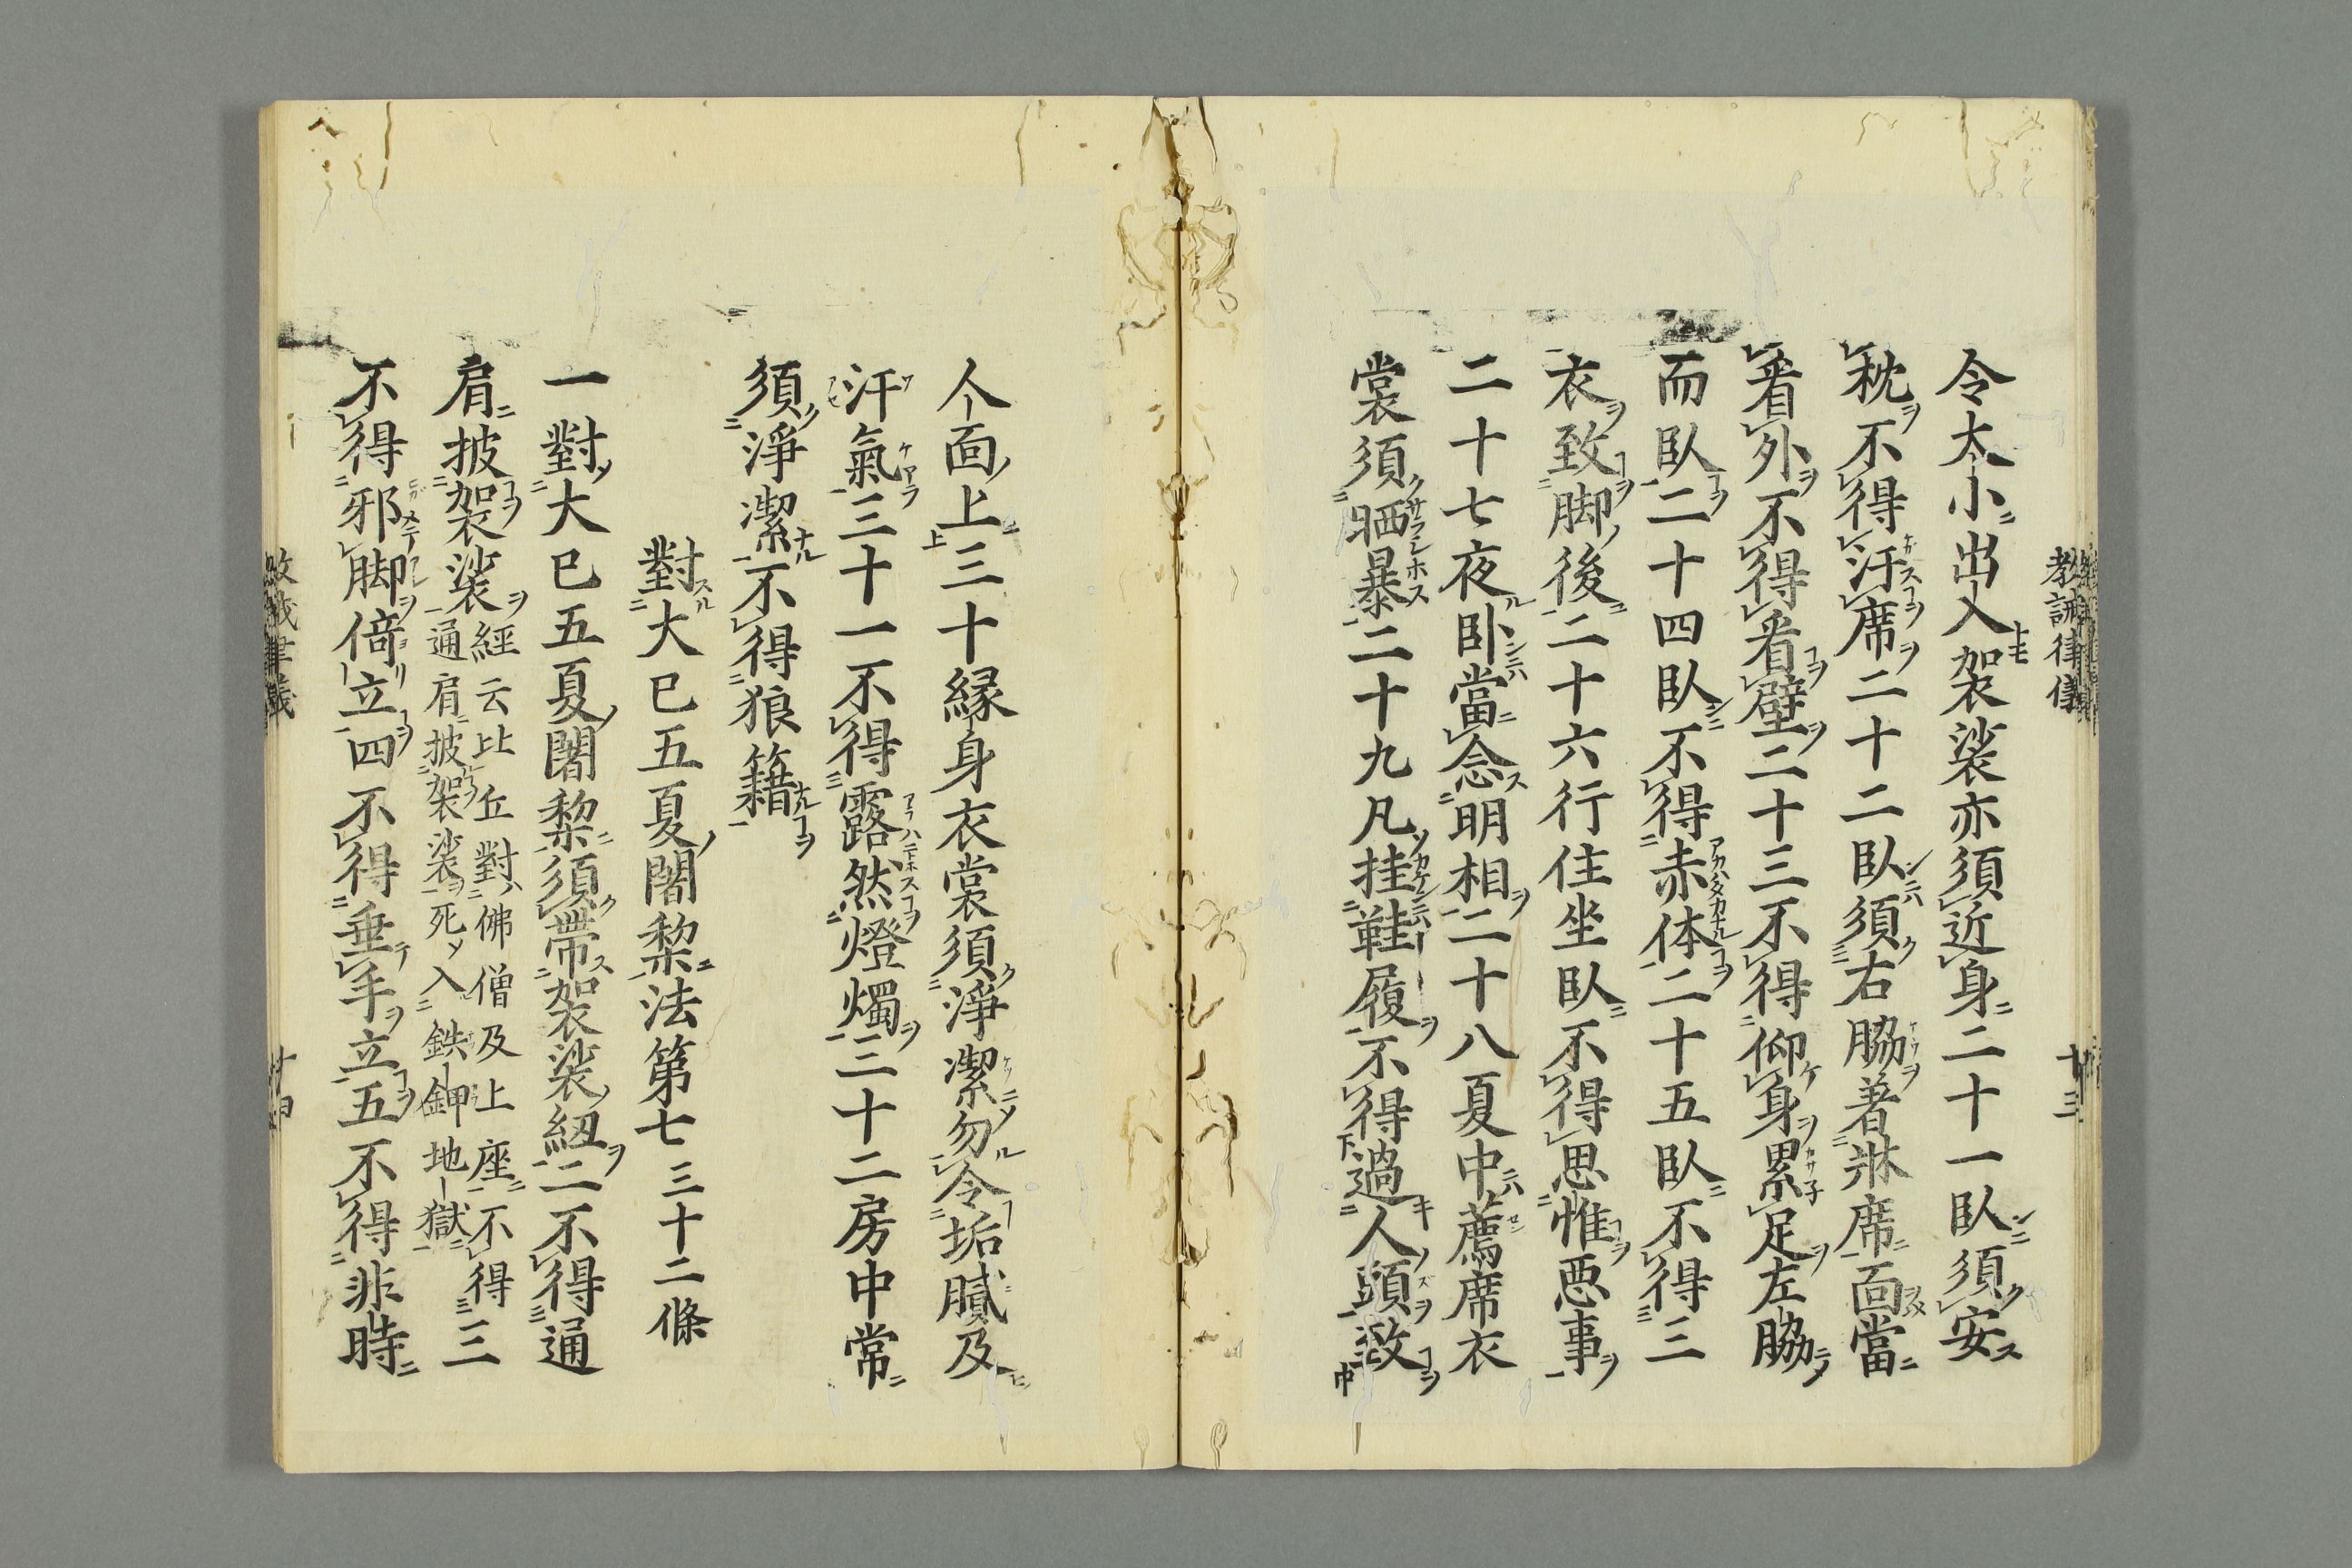 教誡律儀
十三
令太小出入袈裟亦須近身二十一臥須安
枕不得汗席二十二臥須右脇著牀席面當
看外不得看壁二十三不得仰身累足左脇
而臥二十四臥不得赤体二十五臥不得三
衣致脚後二十六行住坐臥不得思惟悪事
二十七夜卧當念明相二十八夏中薦席衣
裳須晒暴二十九凡挂鞋履不得過人頭致
人面上三十縁身衣裳須淨潔勿令垢膩及
汗氣三十一不得露然燈燭三十二房中常
須淨潔不得狼籍
對大已五夏闍梨法第七三十二條
一對大已五夏闍梨須帶袈裟紐二不得通
肩披袈裟經云比丘對佛僧及上座不得三
通肩披袈裟死入鉄鉀地獄
不得邪脚倚立四不得垂手立五不得非時